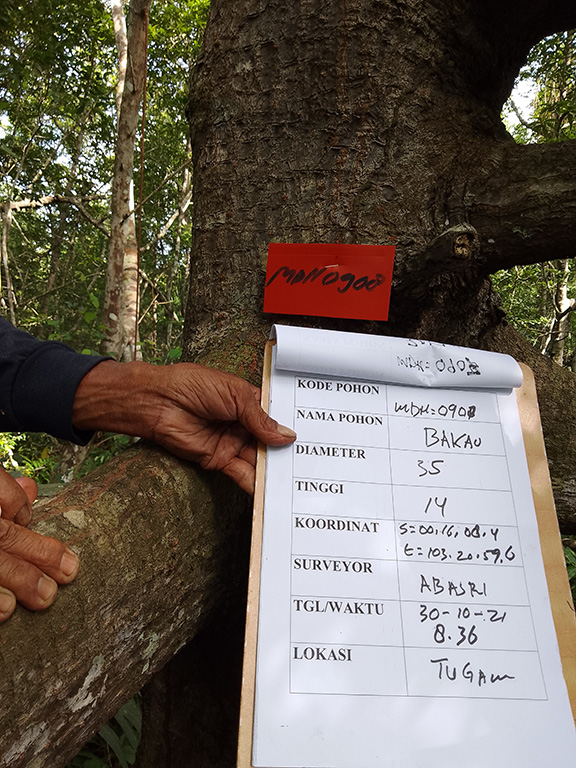 MDH0900
MDH=090
KODE POHON MDH=0900
NAMA POHON BAKAU
DIAMETER 35
TINGGI 14
KOORDINAT S=00,16,08.4
E=103.20.59,6
SURVEYOR ABASRI
TGL/WAKTU 30-10-21
8.36
LOKASI TUGAM